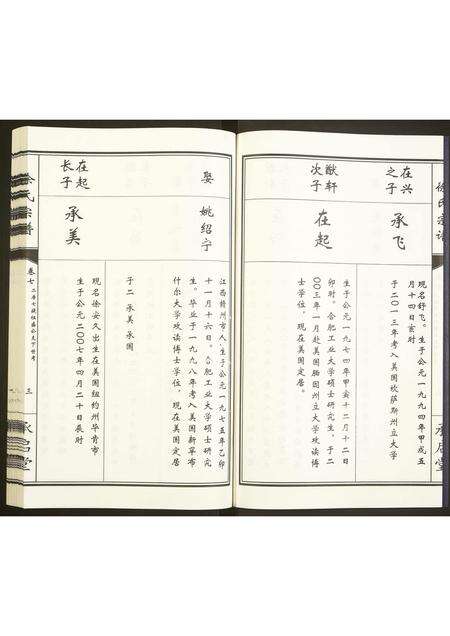 徐氏宗谱
承启堂
在兴
之子
承飞
现名舒飞。生于公元一九九四年甲戌五
月十四日亥时
于二0一三年考入美国欧萨斯州立大学
猷轩
次子
在起
生于公元一九七四年甲寅十二月十二日
卯时。合肥工业大学硕士研究生，于二
00三年一月赴美国德因州立大学攻读博
士学位，现在美国定居。
娶
姚绍宁
江西赣州市人，生于公元一九七五年乙卯
十一月十六日，合肥工业大学硕士研究
生。毕业于一九九八年考入美国新罕布
什尔大学攻读博士学位，现在美国定居
子二 承美 承国
在起
长子
承美
现名徐安久出生在美国纽约州华肯市
生于公元二00七年四月二十日辰时
徐氏宗谱
卷七
三
承启堂